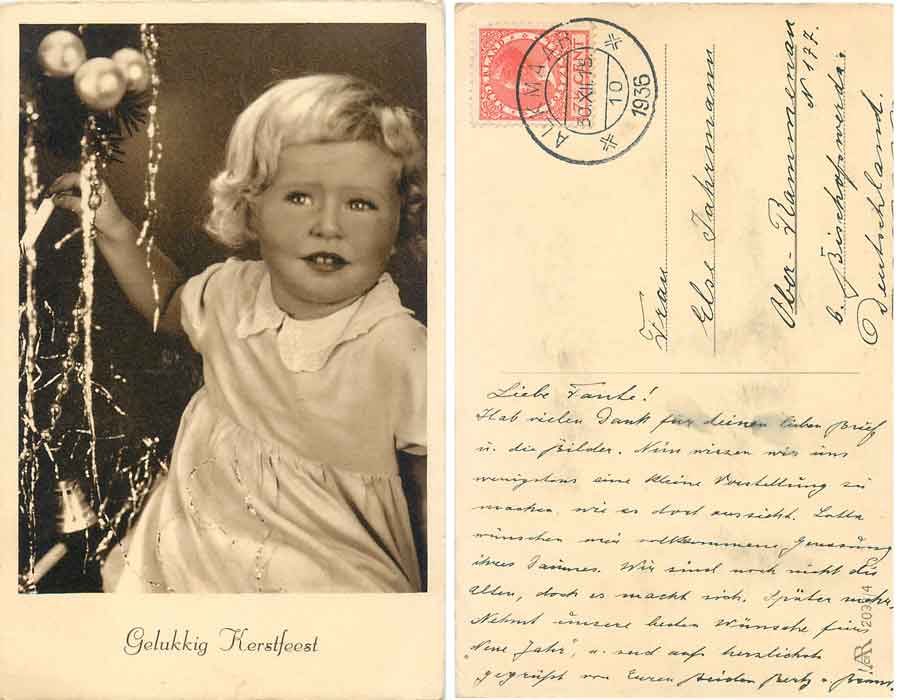 Gelukkig Kerstfeest
NEDERLAND
CENT
ALKMAAR
30.XII.18
10
1936
Frau
Else Fahrmann
Ober-Rammenau
N 177.
b. Bischofswerda.
Deutschland.
Liebe Tante!
Hab vielen Dank für deinen lieben Brief
u. die Bilder. Nun wissen wir uns
wenigstens eine kleine Vorstellung zu
machen, wie es dort aussicht. Lotta
wünschen wir vollkommene Genesung
ihres Daumes. Wir sind noch nicht die
Alten, doch es macht sich. Später mehr.
Nehmt unsere besten Wünsche fürs
"Neue Jahr", u. seid aufs herzlichste
gegrüßt von Euren beiden
AR
2039/4